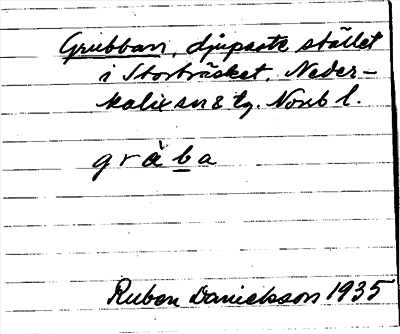 Grubban, djupaste stället
i Storträsket. Neder-
kalix sn & tg. Norrb l.
gràba
Ruben Danielsson 1935